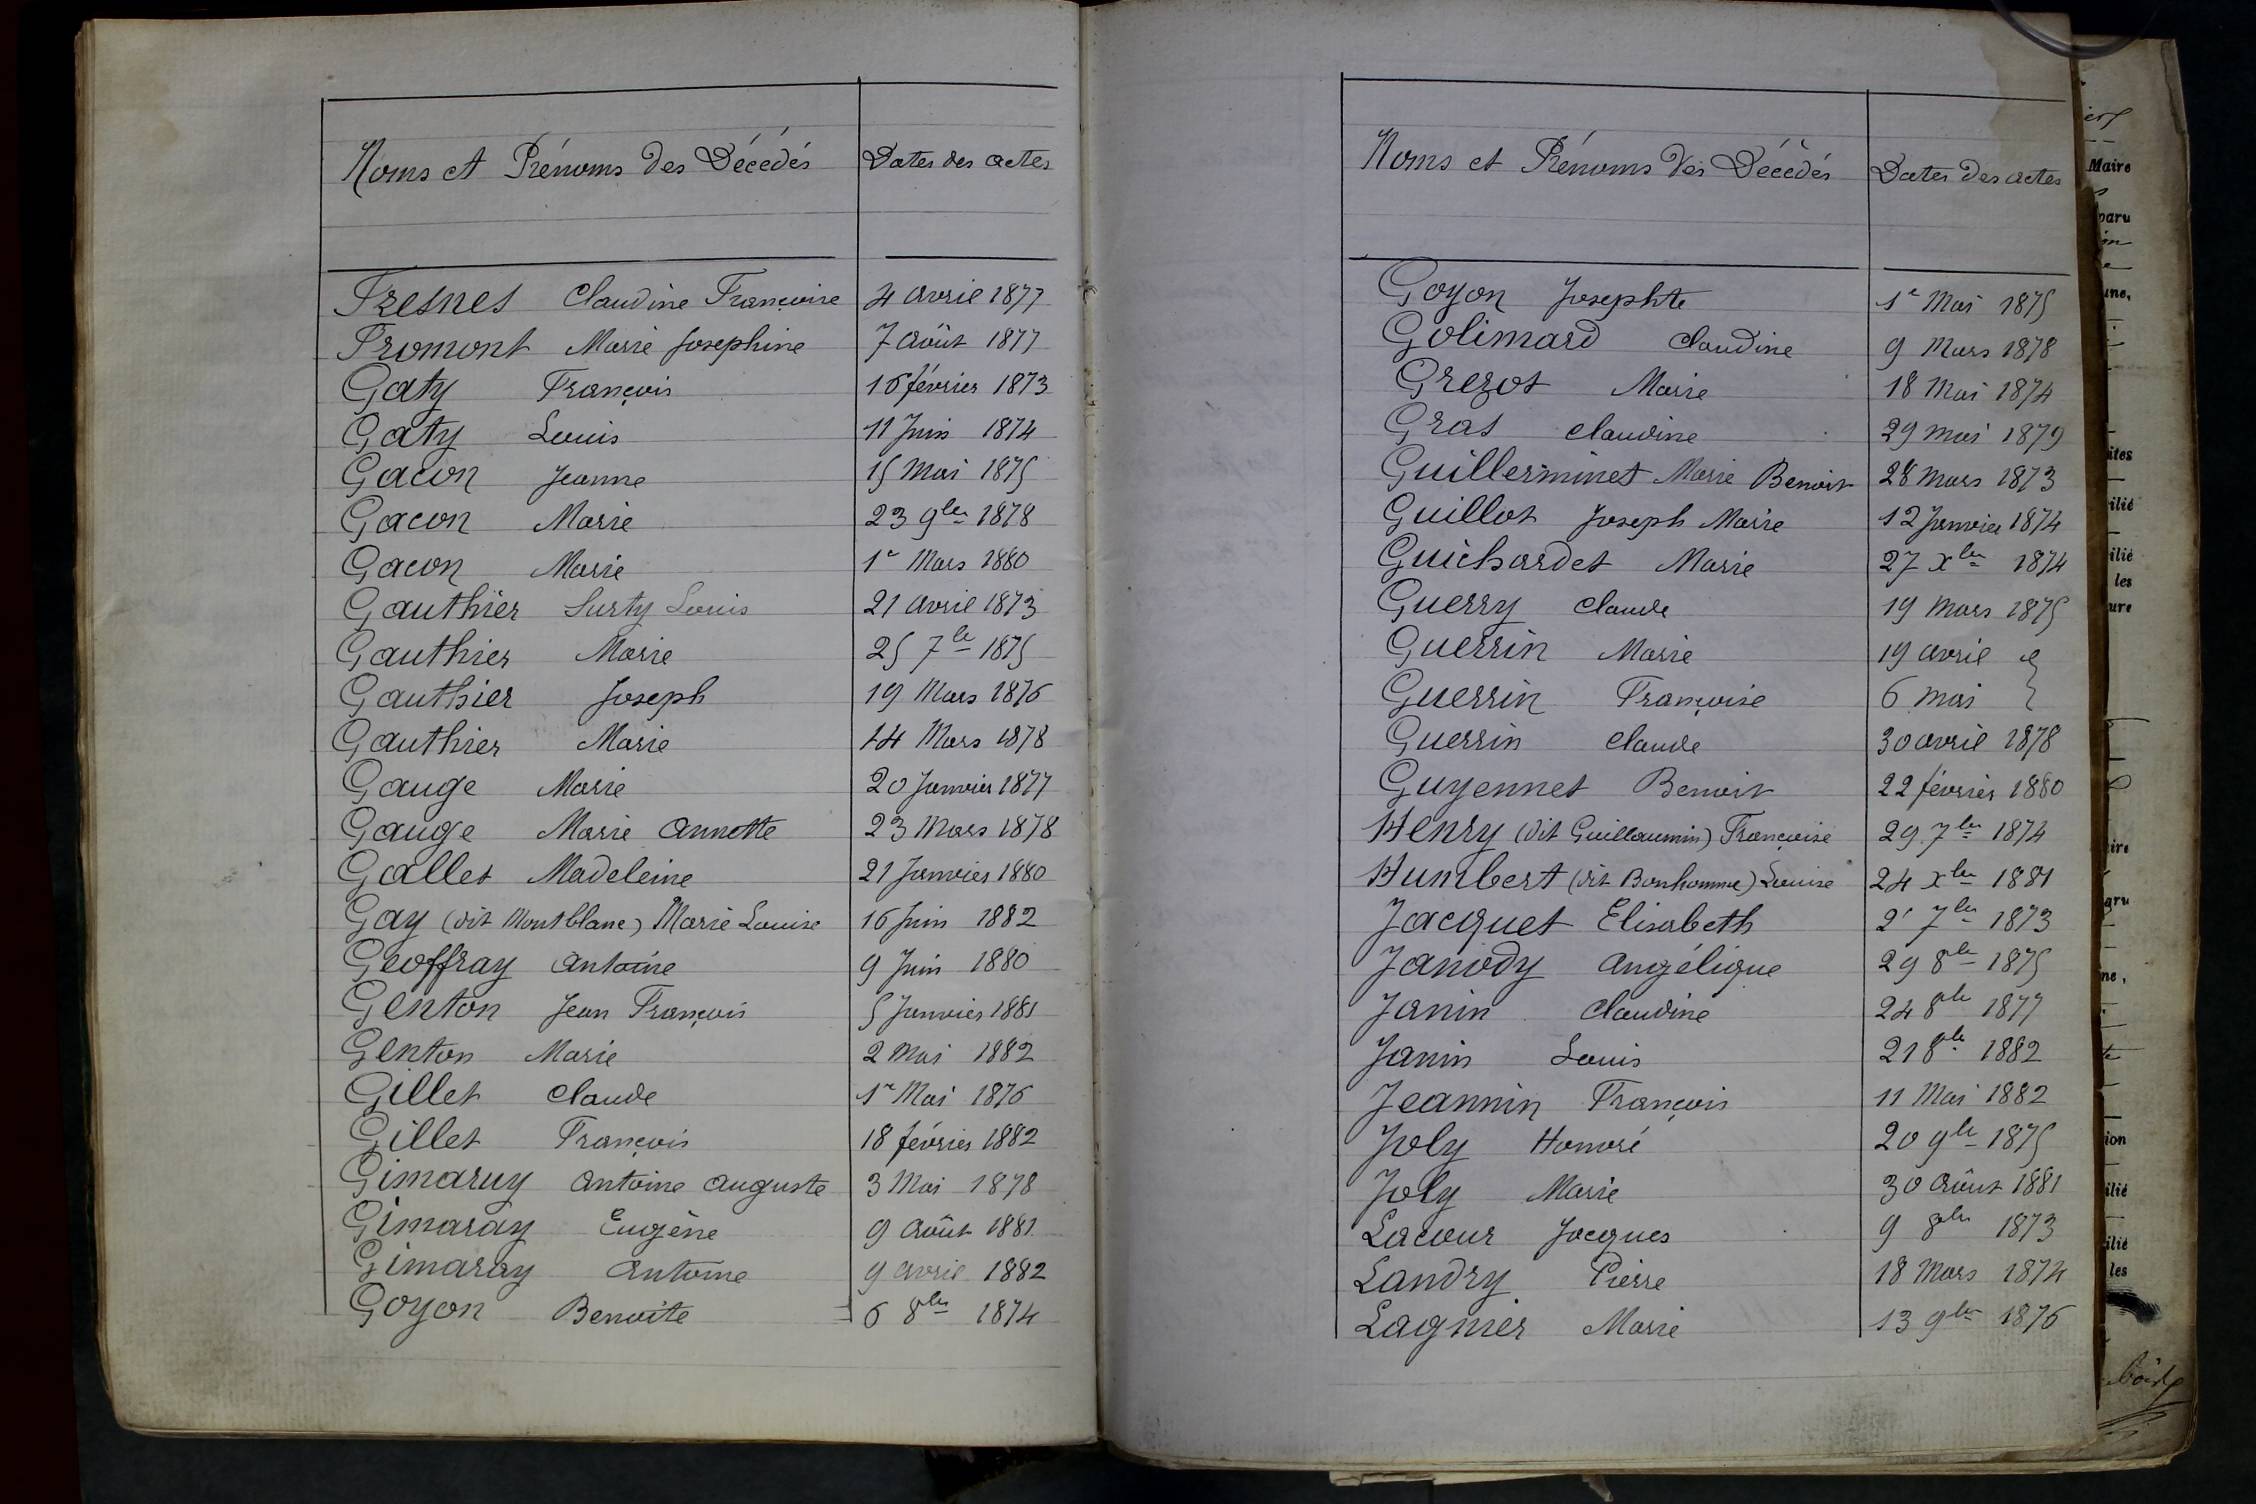 Noms et Prénoms des Décédés Dates des actes
Fresnes Claudine Françoise 4 avril 1877
Fromont Marie Josephine 7 août 1877
Gaty François 16 février 1873
Gaty Louis 11 Juin 1874
Gacon Jeanne 15 Mai 1875
Gacon Marie 23 9bre 1878
Gacon Marie 1er Mars 1880
Gauthier Surty Louis 21 avril 1873
Gauthier Marie 25 7bre 1875
Gauthier Joseph 19 Mars 1876
Gauthier Marie 14 Mars 1878
Gauge Marie 20 Janvier 1877
Gauge Marie Annette 23 Mars 1878
Gallet Madeleine 21 Janvier 1880
Gay (dit Montblanc) Marie Louise 16 Juin 1882
Geoffray Antoine 9 Juin 1880
Genton Jean François 5 Janvier 1881
Genton Marie 2 Mai 1882
Gillet Claude 1er Mai 1876
Gillet François 18 février 1882
Gimaray Antoine Auguste 3 Mai 1878
Gimaray Eugène 9 Août 1881
Gimaray Antoine 9 avril 1882
Goyon Benoite 6 8bre 1874
Noms et Prénoms des Décédés Dates des actes
Goyon Josephte 1er Mai 1875
Golimard Claudine 9 Mars 1878
Grezot Marie 18 Mai 1874
Gras Claudine 29 mai 1879
Guillerminet Marie Benoit 28 mars 1873
Guillot Joseph Marie 12 Janvier 1874
Guichardet Marie 27 Xbre 1874
Guerry Claude 19 Mars 1875
Guerrin Marie 19 avril
Guerrin Françoise 6 mai
Guerrin Claude 30 avril 1878
Guyennet Benoit 22 février 1880
Henry (dit Guillaumin) Françoise 29 7bre 1874
Humbert (dit Bonhomme) Louise 24 Xbre 1881
Jacquet Elisabeth 2 7bre 1873
Janody Angélique 29 8bre 1875
Janin Claudine 24 8bre 1877
Janin Louis 21 8bre 1882
Jeannin François 11 Mai 1882
Joly Honoré 20 9bre 1875
Joly Marie 30 Août 1881
Lacour Jacques 9 8bre 1873
Landry Pierre 18 Mars 1874
Lagnier Marie 13 9bre 1876
Maire